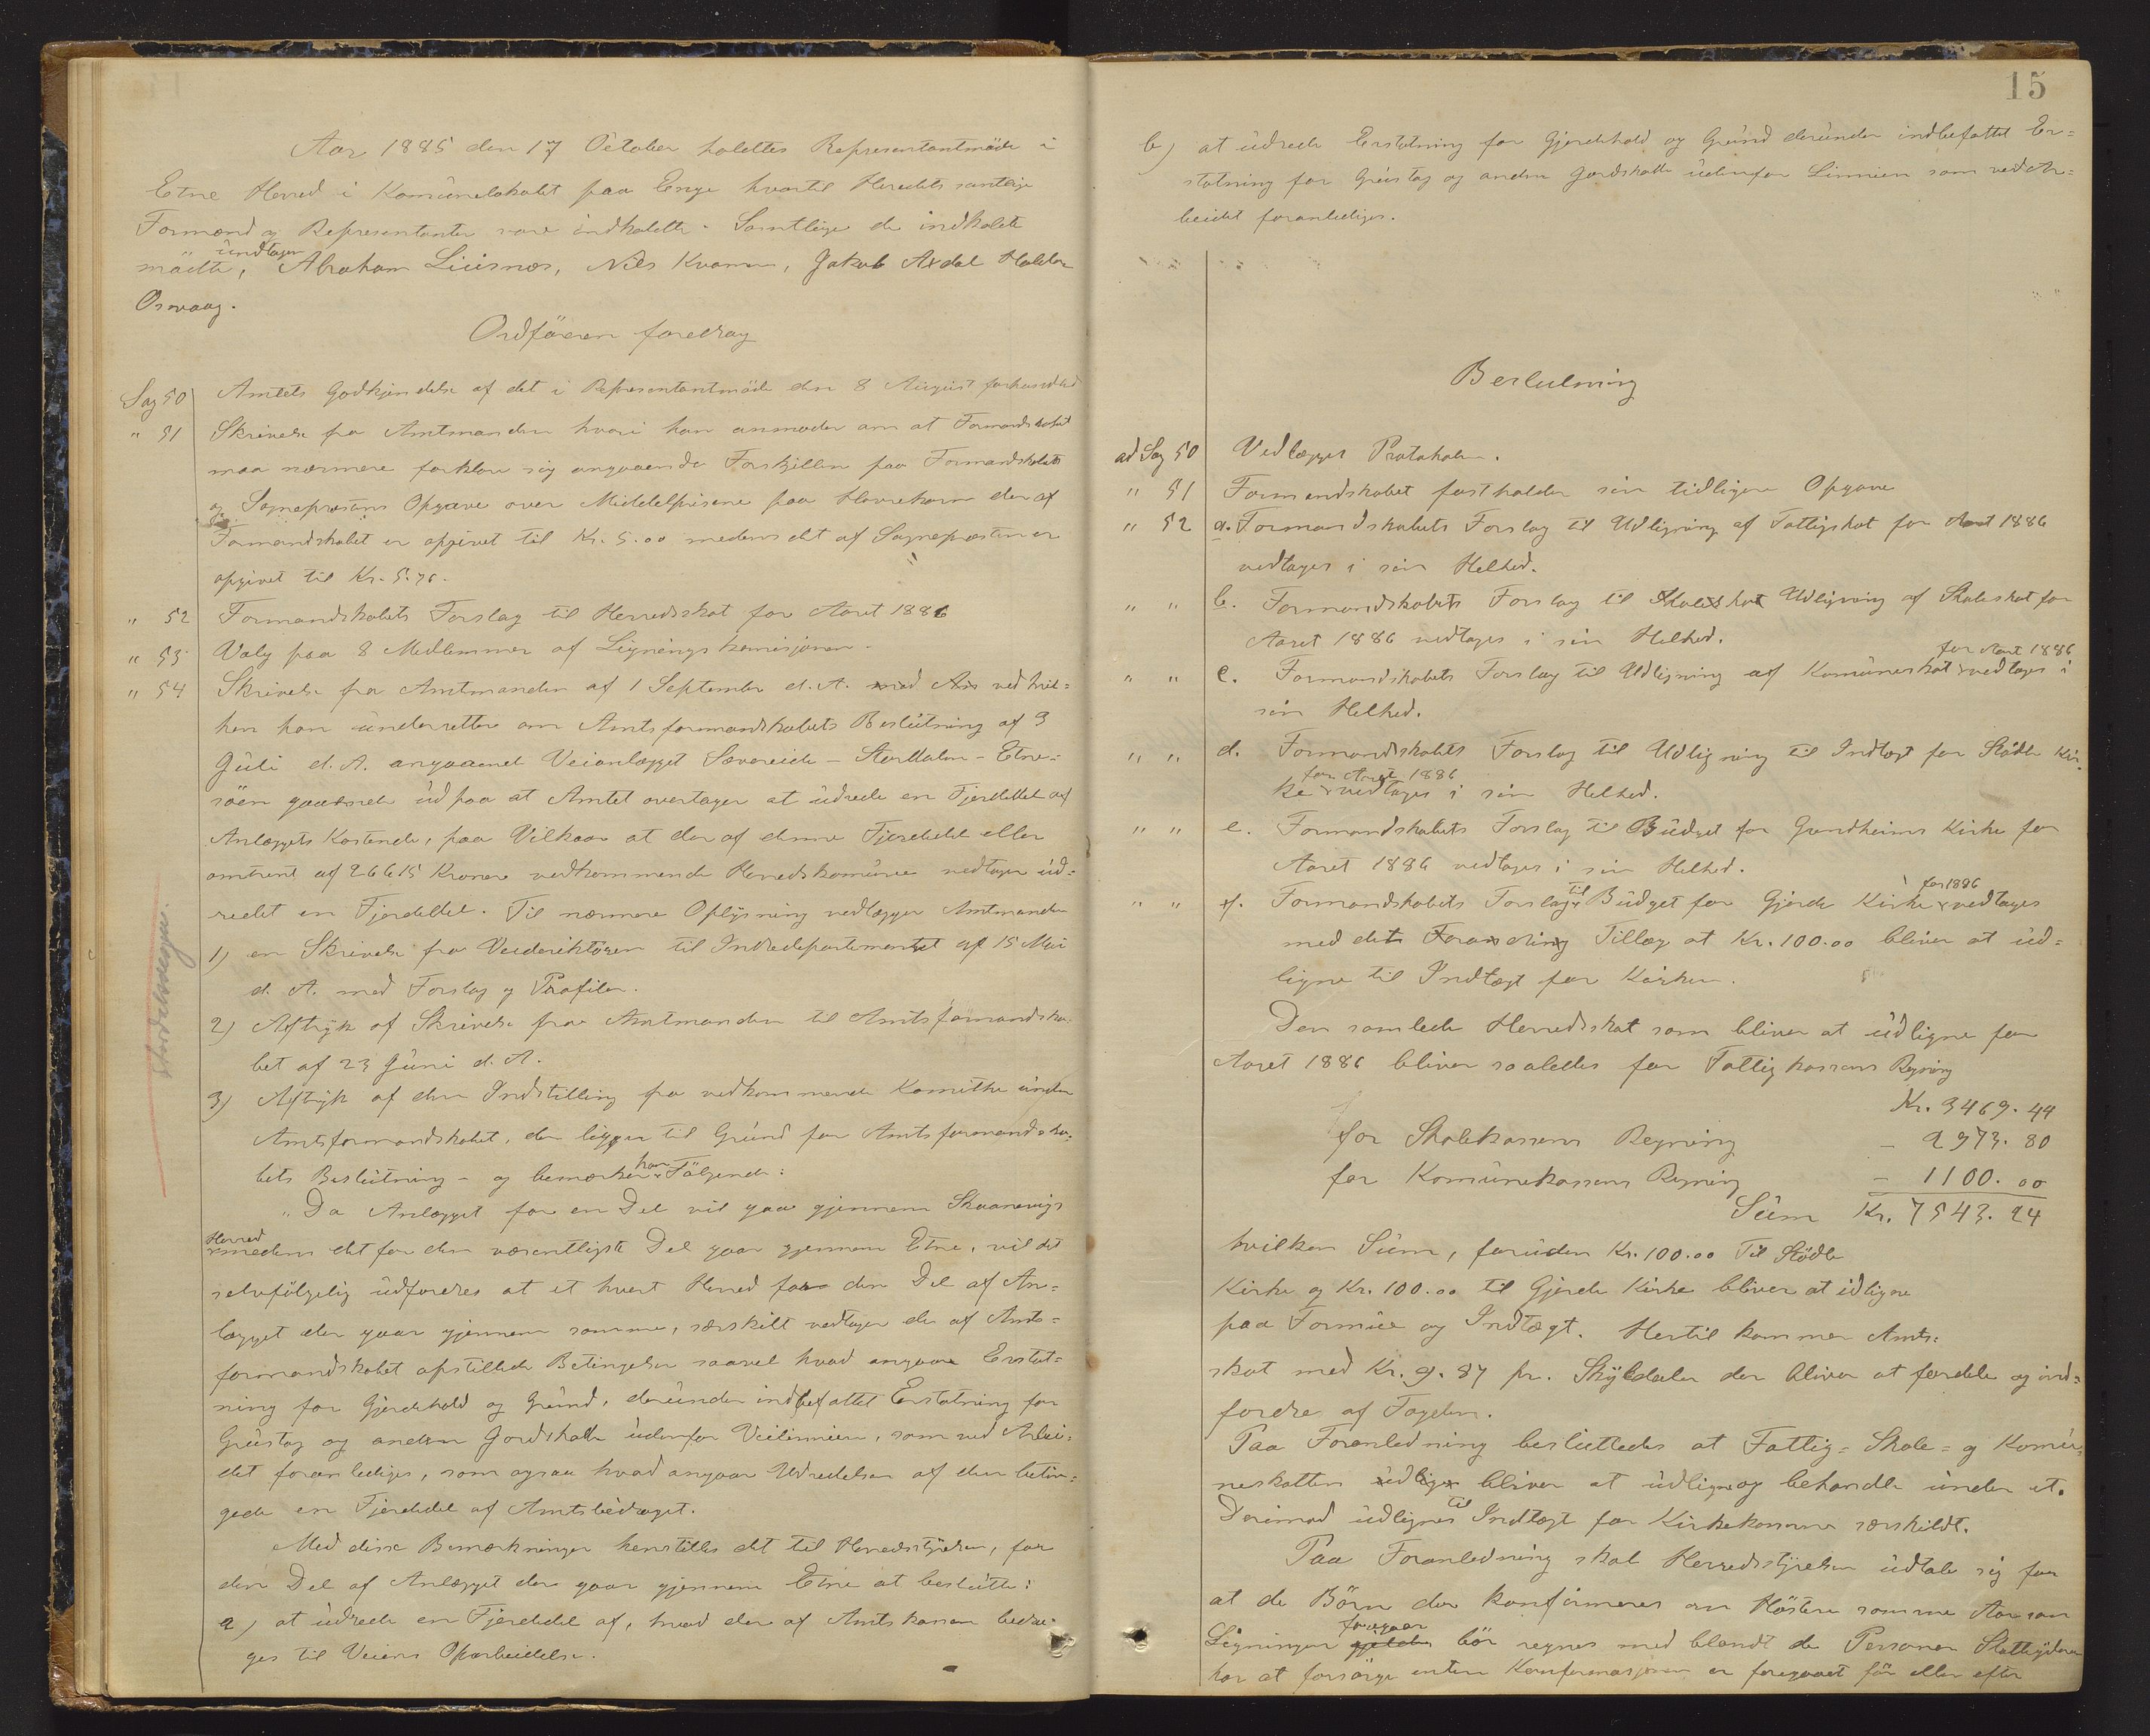 Aar 1885 den 17 October holdttes Representantmöde i
Etne Herred i Komünelokalet paa Enge hvortil Heredets samtlige
Formænd og Representanter vare indkaldte. Samtlige de indkaldte
mødte, undtagen Abraham Liüsnes, Nils Kvamme, Jakob Axdal Haldor
Osnvaag.
Ordføreren foredrag
Sag 50 Amtets Godkjendelse af det i Representantmöde den 8 August forhandlede
" 51 Skrivelse fra Amtmanden hvori han anmoder om at Formandskabet
maa nærmere forklare sig angaaende Forskjellen paa Formandskabets
og Sognepræstens Opgave over Middelprisene paa Havrekorn der af
Formandskabet er opgivet til Kr. 5.00 medens det af Sognepræsten er
opgivet til Kr. 5.76.
" 52 Formandskabets Forslag til Herredsskat for Aaret 1886
" 53 Valg paa 8 Medlemmer af Ligningskomisjonen.
" 54 Skrivelse fra Amtmanden af 1 September d. A. med Am ved hvil=
ken han ünderretter om Amtsformandskabets Beslütning af 3
Jüli d. A. angaaende Veianlægget Sævereide - Stordalen - Etne=
søen gaaende üd paa at Amtet overtager at üdrede en Fjerdedel af
Anlæggets Kostende, paa Vilkaar at der af denne Fjerdedel eller
omtrent af 26615 Kroner vedkommende Herredskomüne vedtager üd=
redet en Fjerdedel. Til nærmere Oplysning vedlægger Amtmanden
1) en Skrivelse fra Veidirektøren til Indredepartementet af 15 Mai
d. A. med Forslag og Profiler.
2) Aftryk af Skrivelse fra Amtmanden til Amtsformandska=
bet af 23 Jüni d. A.
3) Aftryk af den Indstilling fra vedkommende Komithe ünder
Amtsformandskabet, der ligger til Gründ for Amtsformandska=
bets Beslütning - og bemærker han Følgende:
"Da Anlægget for en Del vil gaa gjennem Skaanevigs
Herred medens det for den væsentligste Del gaar gjennem Etne, vil det
selvfölgelig üdfordres at et hvert Herred for den Del af An=
lægget der gaar gjennem samme, særskilt vedtager de af Amts=
formandskabet opstillede Betingelser saavel hvad angaar Erstat=
ning for Gjerdehold og Gründ, deründer indbefattet Erstatning for
Grüstag og anden Jordskade üdenfor Veilinnien, som ved Arbei=
det foranlediges, som ogsaa hvad angaar Udredelsen af den betin=
gede en Fjerdedel af Amtsbidraget.
Med disse Bemærkninger henstilles det til Herredsstyrelsen, for
den Del af Anlægget der gaar gjennem Etne at beslütte:
a) at üdrede en Fjerdedel af, hvad der af Amtskassen bidra=
ges til Veiens Oparbeidelse.
15
b) at üdrede Erstatning for Gjerdehold og Gründ deründer indbefattet Er=
statning for Grüstag og anden Jordskade üdenfor Linnien som ved Ar=
beidet foranlediges.
Beslutning
ad Sag 50 Vedlægges Protokolen.
" 51 Formandskabet fastholder sin tidligere Opgave
" 52 a. Formandskabets Forslag til Udligning af Fattigskat for Aaret 1886
vedtages i sin Helhed.
" " b. Formandskabets Forslag til Skoleskat Udligning af Skoleskat for
Aaret 1886 vedtages i sin Helhed.
" " c. Formandskabets Forslag til Udligning af Komüneskat for Aaret 1886 vedtages i
sin Helhed.
" " d. Formandskabets Forslag til Udligning til Indtægt for Stødle Kir=
ke for Aaret 1886 vedtages i sin Helhed.
" " e. Formandskabets Forslag til Büdget for Grindheims Kirke for
Aaret 1886 vedtages i sin Helhed.
" " f. Formandskabets Forslag til Büdget for Gjerde Kirke for 1886 vedtages
med det Forandring Tillæg at Kr. 100.00 bliver at üd=
ligne til Indtægt for Kirken.
Den samlede Herredsskat som bliver at üdligne for
Aaret 1886 bliver saaledes for Fattigkassens Regning
Kr. 3469.44
for Skolekassens Regning - 2973.80
for Komünekassens Regning - 1100.00
Süm Kr. 7543.24
hvilken Süm, forüden Kr. 100.00 Til Stödle
Kirke og Kr. 100.00 til Gjerde Kirke bliver at üdligne
paa Formüe og Indtægt. Hertil kommer Amts=
skat med Kr. 9.87 pr. Skyldaler der bliver at fordele og ind=
fordre af Fogden.
Paa Foranledning beslüttedes at Fattig= Skole= og Komü=
neskatten üdlign bliver at üdligne og behandle ünder et.
Derimod üdlignes til Indtægt for Kirkekassene særskildt.
Paa Foranledning skal Herredsstyrelsen üdtale sig for
at de Börn der konfirmeres om Høsten samme Aar som
Ligningen gjelder foregaar bör regnes med blandt de Personer Skatteyderen
har at forsörge enten Konfirmasjonen er foregaaet för eller efter